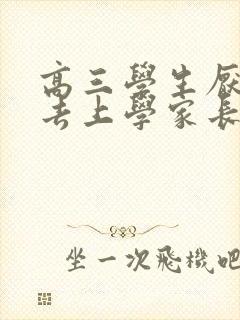 高三學生厭
去上學家長
坐一次飛機吧